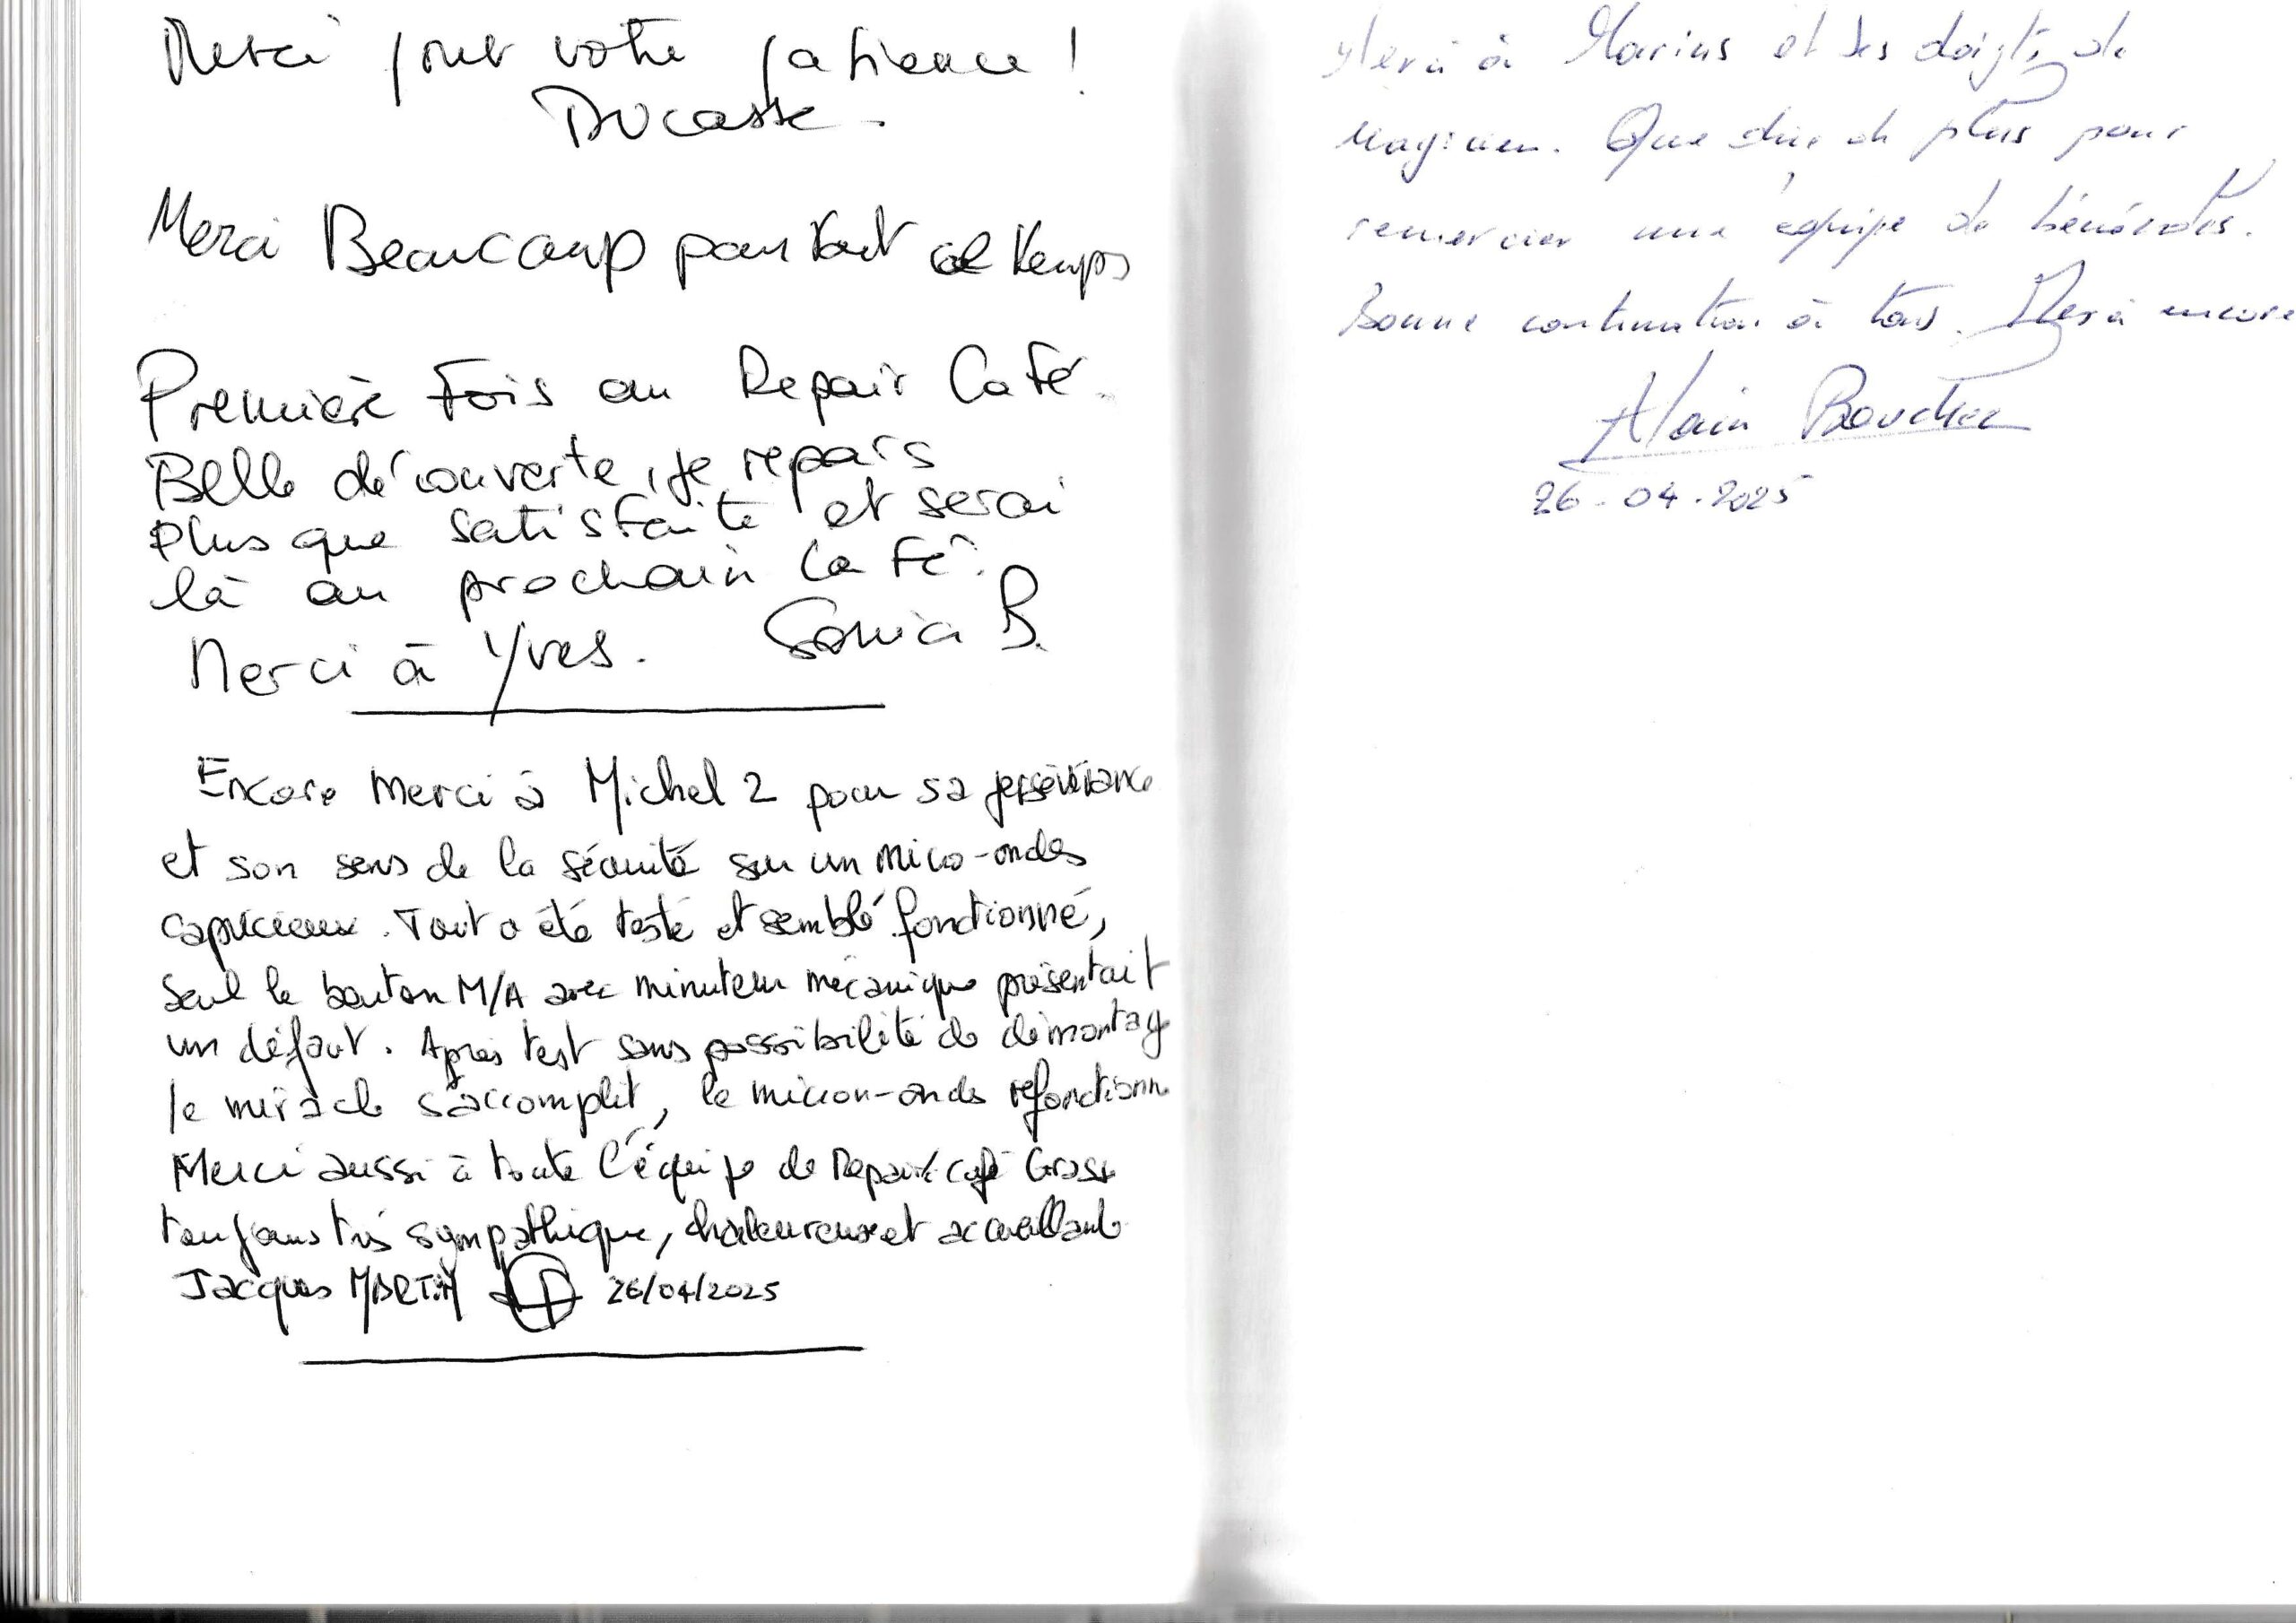 Merci pour votre patience !
Ducasse -
Merci Beaucoup pour tout ce temps
Première Fois au Repair Café.
Belle découverte, je repars
plus que satisfaite et serai
là au prochain Café.
Merci à Yves. Sonia B.
Encore merci à Michel 2 pour sa persévérance
et son sens de la sécurité sur un micro-ondes
capricieux. Tout a été testé et semblé fonctionné,
seul le bouton M/A avec minuteur mécanique présentait
un défaut. Après test sans possibilité de démontage
le miracle s'accomplit, le micron-ondes refonctionne
Merci aussi à toute l'équipe de Repair café Grasse
toujours très sympathique, chaleureuse et accueillante
Jacques MARTIN 26/04/2025
Merci à Marius et ses doigts de
magicien. Que dire de plus pour
remercier une équipe de bénévoles.
Bonne continuation à tous. Merci encore
Alain
26-04-2025